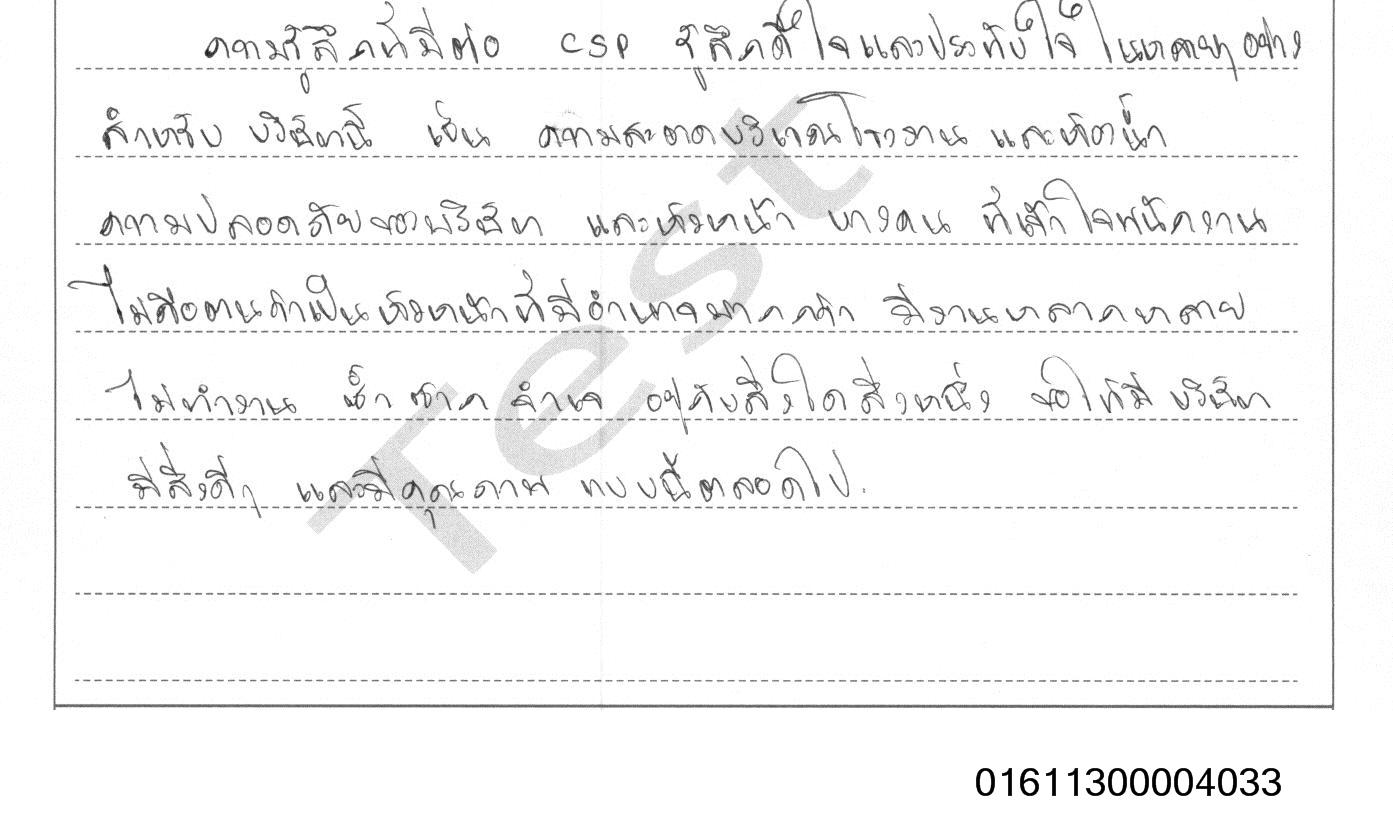 ความรู้สึกที่มีต่อ CSP รู้สึกดีใจและประทับใจ ในหลายๆอย่าง
สำหรับ บริษัทนี้ เช่น ความสะอาดบริเวณโรงงาน และห้องน้ำ
ความปลอดภัยของบริษัท และหัวหน้า บางคน ที่เข้าใจพนักงาน
ไม่ถือตนว่าเป็นหัวหน้าที่มีอำนาจมากกว่า มีงานหลากหลาย
ไม่ทำงาน ซ้ำซาก จำเจ อยู่กับสิ่งใดสิ่งหนึ่ง ขอให้มี บริษัท
มีสิ่งดีๆ และมีคุณภาพ แบบนี้ตลอดไป.
Test
01611300004033